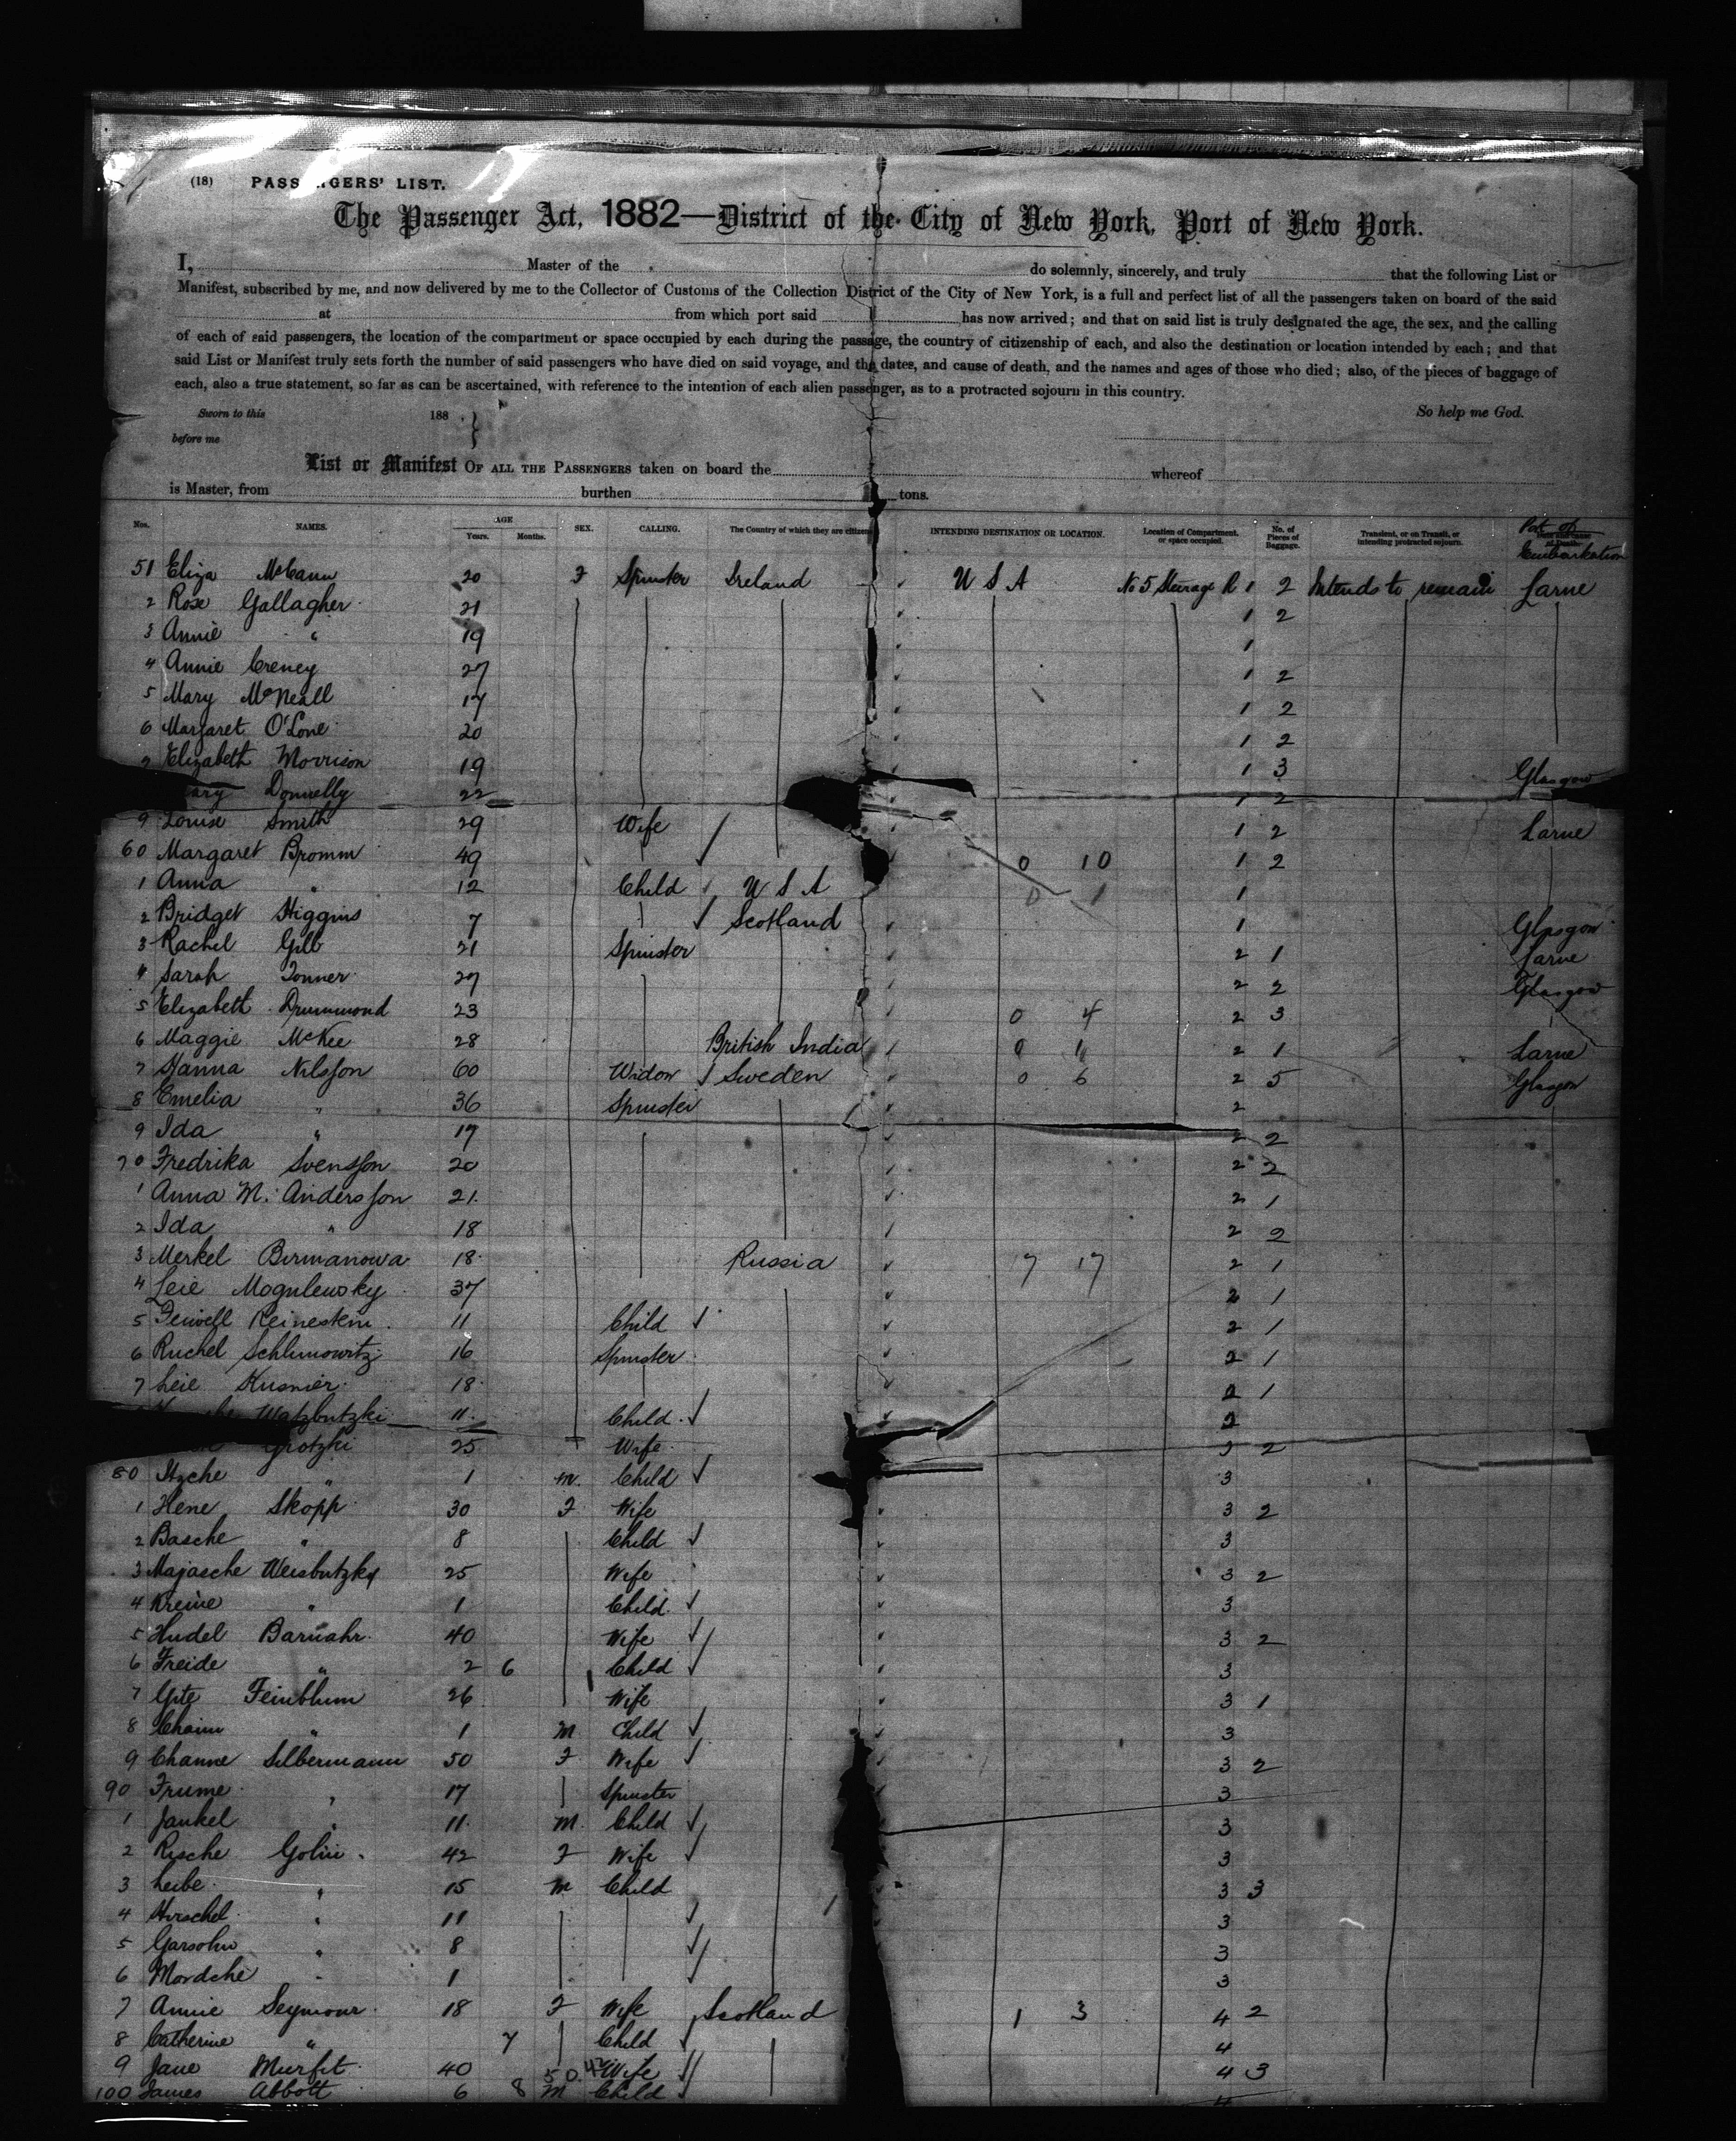 (18) PASSENGERS' LIST.
The Passenger Act, 1882—District of the City of New York, Port of New York.
I, Master of the do solemnly, sincerely, and truly that the following List or
Manifest, subscribed by me, and now delivered by me to the Collector of Customs of the Collection District of the City of New York, is a full and perfect list of all the passengers taken on board of the said
at from which port said has now arrived; and that on said list is truly designated the age, the sex, and the calling
of each of said passengers, the location of the compartment or space occupied by each during the passage, the country of citizenship of each, and also the destination or location intended by each; and that
said List or Manifest truly sets forth the number of said passengers who have died on said voyage, and the dates, and cause of death, and the names and ages of those who died; also, of the pieces of baggage of
each, also a true statement, so far as can be ascertained, with reference to the intention of each alien passenger, as to a protracted sojourn in this country.
Sworn to this 188 So help me God.
before me
List or Manifest OF ALL THE PASSENGERS taken on board the whereof
is Master, from burthen tons.
Nos. NAMES. AGE Years. Months. SEX. CALLING. The Country of which they are citizens INTENDING DESTINATION OR LOCATION. Location of Compartment. or space occupied. No. of Pieces of Baggage. Transient, or on Transit, or intending protracted sojourn. Port of Embarkation
51 Eliza McCann 20 F Spinster Ireland U S A No 5 Steerage R 1 2 Intends to remain Larne
2 Rose Gallagher 21 1 2
3 Annie " 19 1
4 Annie Creney 27 1 2
5 Mary McNeall 17 1 2
6 Margaret O'Lone 20 1 2
7 Elizabeth Morrison 19 1 3 Glasgow
Donnelly 22 1 2
9 Louise Smith 29 Wife 1 2 Larne
60 Margaret Bromm 49 0 10 1 2
1 Anna " 12 Child U S A 0 1 1
2 Bridget Higgins 7 Scotland 1 Glasgow
3 Rachel Gilb 21 Spinster 2 1 Larne
4 Sarah Tonner 27 2 2 Glasgow
5 Elizabeth Drummond 23 0 4 2 3
6 Maggie McKee 28 British India 0 1 2 1 Larne
7 Hanna Nilsson 60 Widow Sweden 0 6 2 5 Glasgow
8 Emelia " 36 Spinster 2
9 Ida " 17 2 2
70 Fredrika Svensson 20 2 2
1 Anna M. Andersson 21 2 1
2 Ida " 18 2 2
3 Merkel Birmanowa 18 Russia 17 17 2 1
4 Leie Mogulewsky 37 2 1
5 Reinestein 11 Child 2 1
6 Ruchel Schlimowitz 16 Spinster 2 1
7 Leie Kusnier 18 2 1
Watzbutzki 11 Child 2
Grotzki 25 Wife 3 2
80 Itzche " 1 m. Child 3
1 Hene Skopp 30 F Wife 3 2
2 Basche " 8 Child 3
3 Majasche Weisbutzky 25 Wife 3 2
4 Kreine " 1 Child 3
5 Hudel Baruahr 40 Wife 3 2
6 Freide " 2 6 Child 3
7 Gite Feinblum 26 Wife 3 1
8 Chaim " 1 M Child 3
9 Channe Silbermann 50 F Wife 3 2
90 Frume " 17 Spinster 3
1 Jankel " 11 M. Child 3
2 Rische Golin 42 F Wife 3
3 Leibe " 15 M Child 3 3
4 Hirschel " 11 3
5 Garsohn " 8 3
6 Mordche " 1 3
7 Annie Seymour 18 F Wife Scotland 1 3 4 2
8 Catherine " 7 Child 4
9 Jane Murfit 40 Wife 4 3
100 James Abbott 6 8 M Child